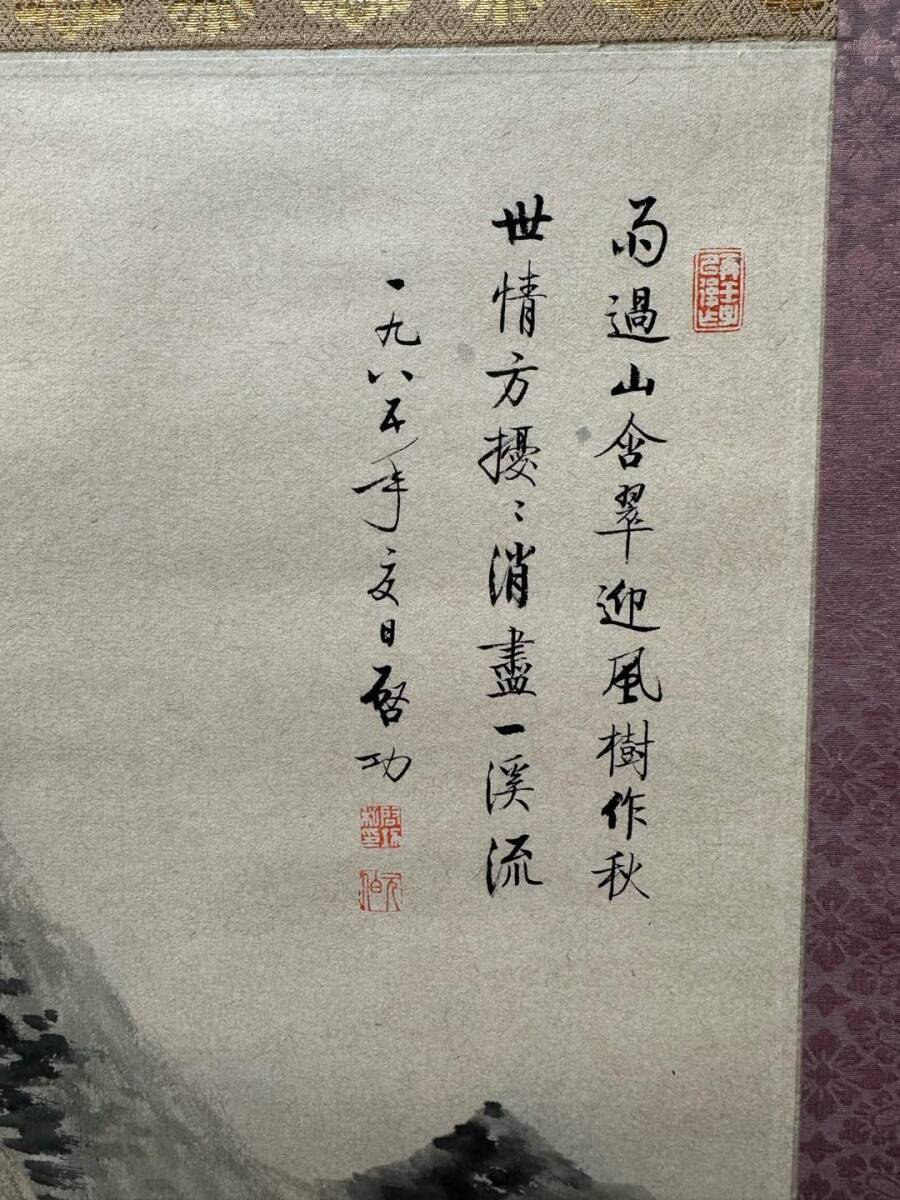 雨過山含翠迎風樹作秋
世情方擾〻消盡一溪流
一九八五年夏日啓功
元伯